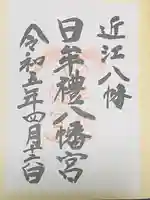 近江八幡
日牟禮八幡宮
令和五年四月十二日